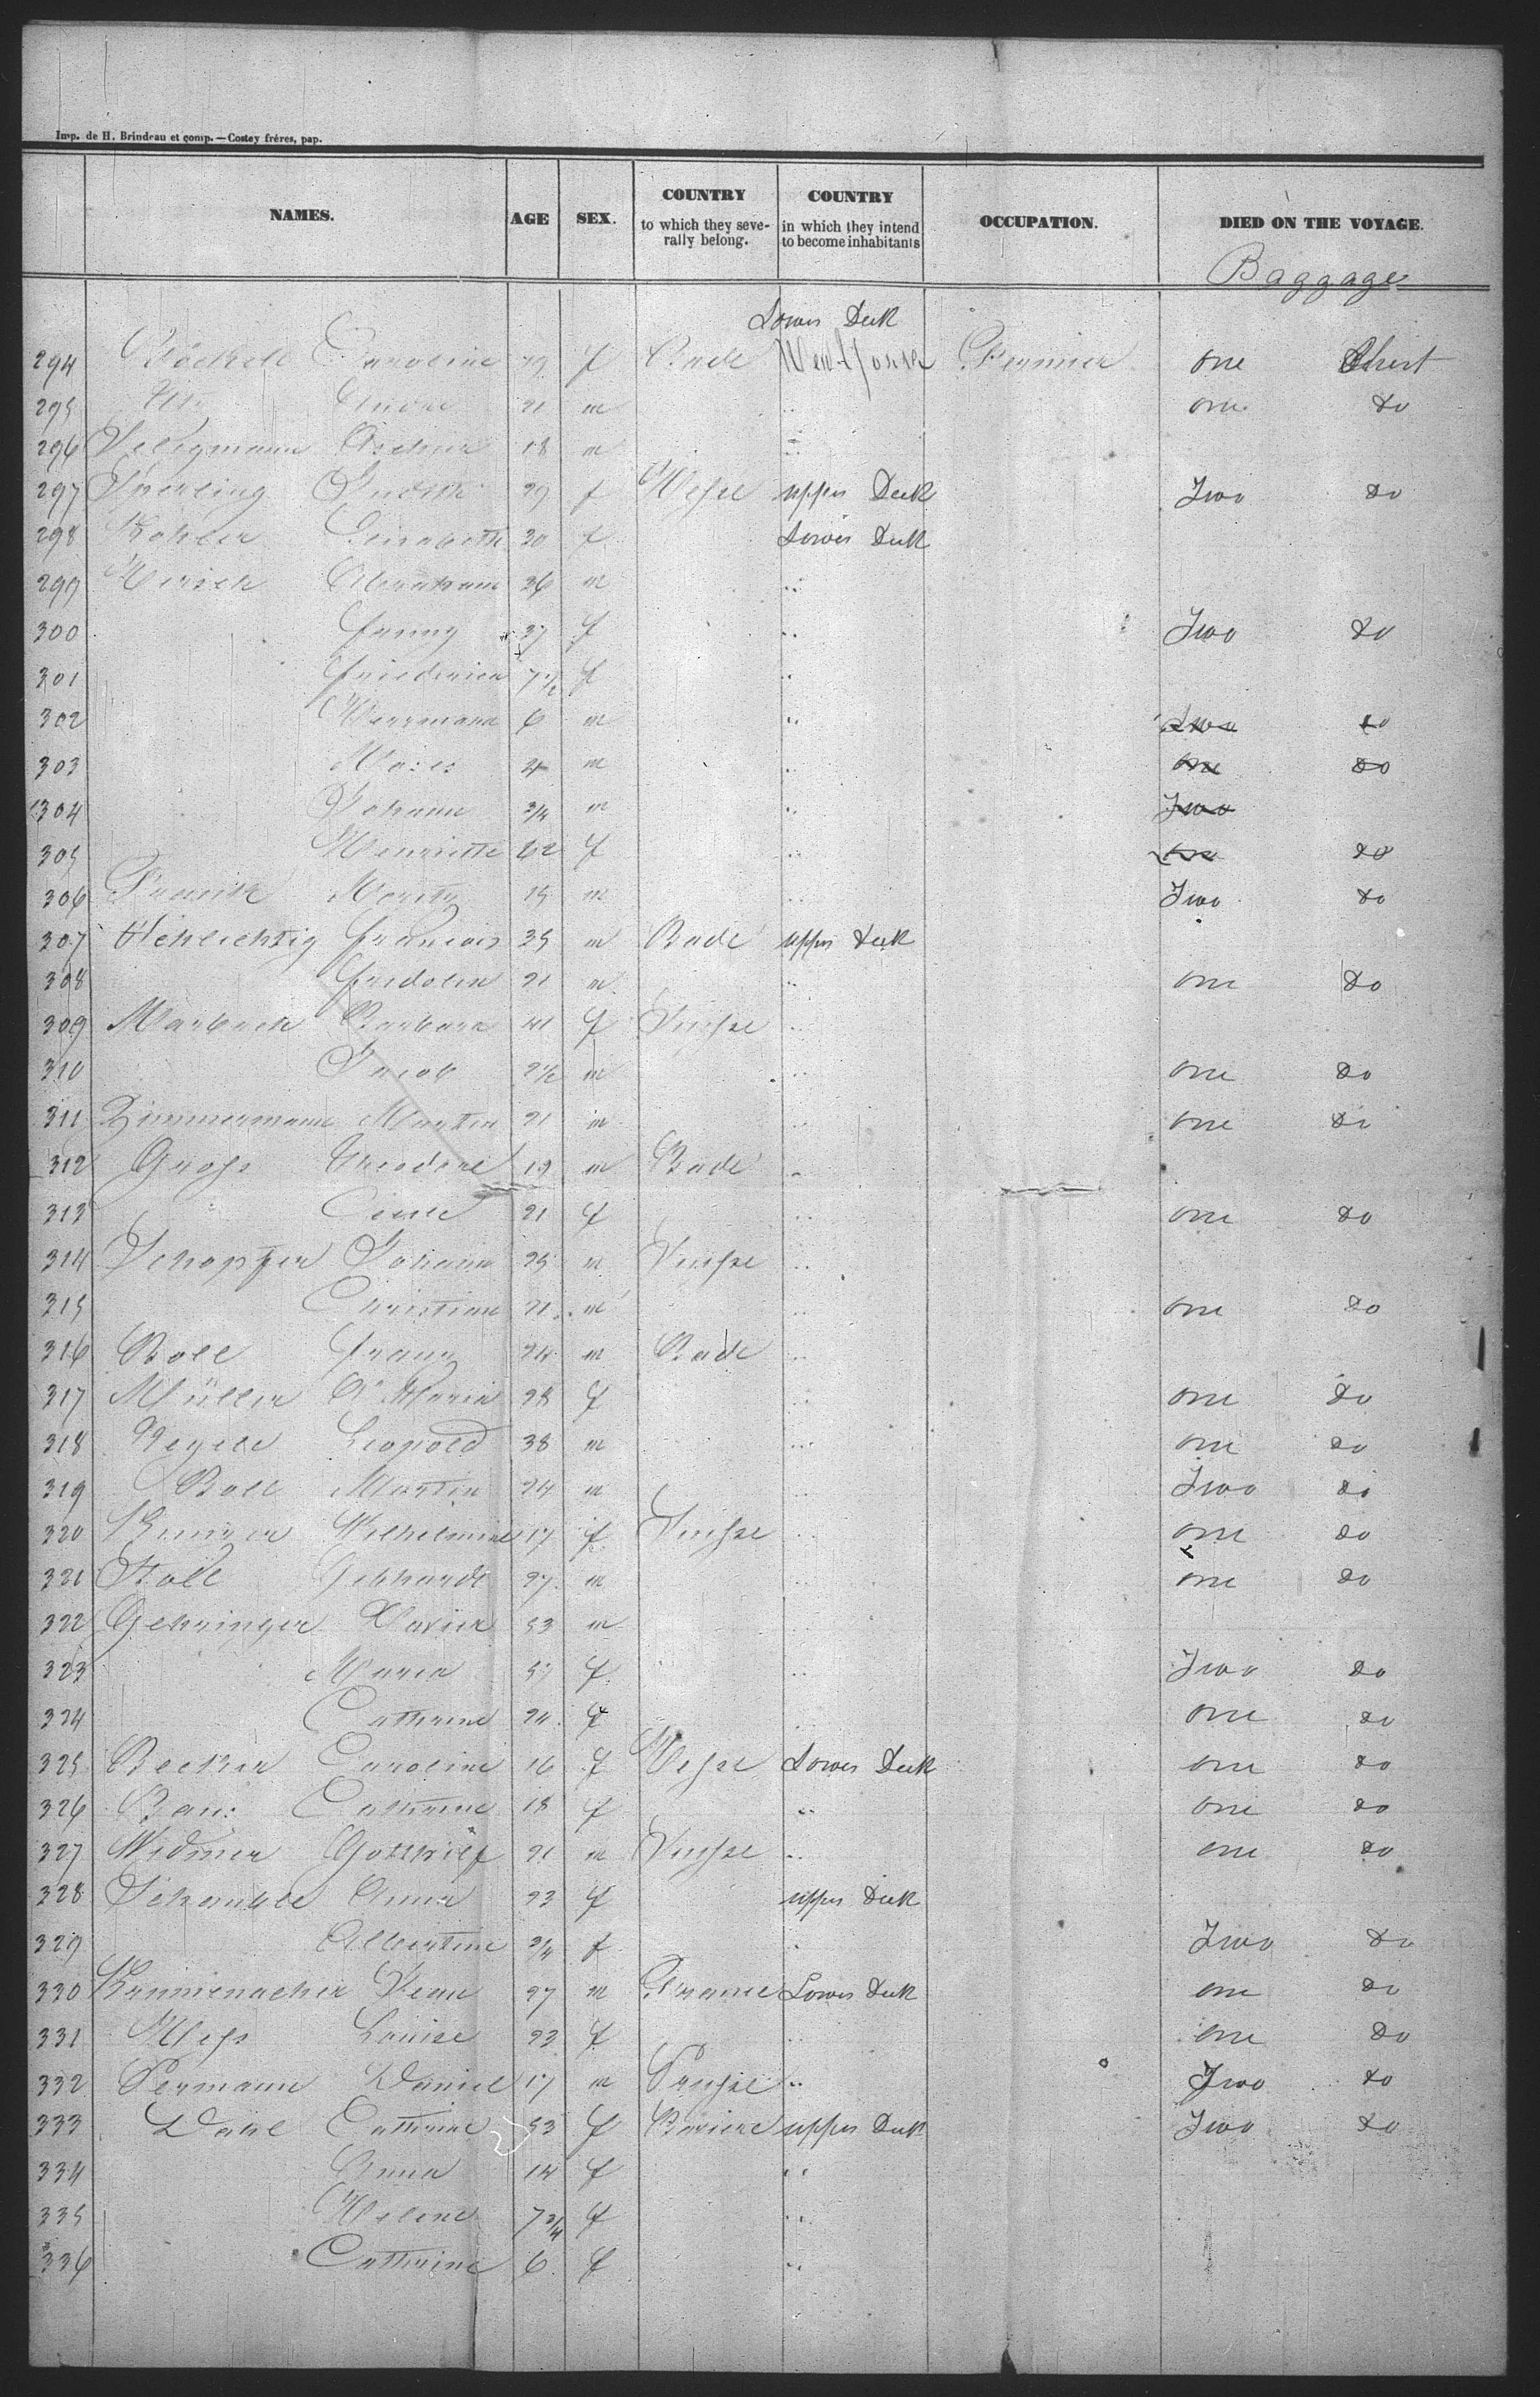 Imp. de H. Brindeau et comp. — Costey frères, pap.
NAMES. AGE SEX. COUNTRY to which they seve-rally belong. COUNTRY in which they intend to become inhabitants OCCUPATION. DIED ON THE VOYAGE.
Baggage
Lower Deck
294 Caroline 29 f Bade New-York Fermier one Chest
295 André 21 m " one do
296 Seligmann 18 m "
297 Sperling Judith 29 f Hesse upper Deck Two do
298 Kohler Elisabeth 30 f Lower Deck
299 Hirsch Abraham 36 m "
300 Fanny 37 f " Two do
301 Friederica 7 1/2 f "
302 Herrmann 6 m " Two do
303 Moses 4 m " one do
304 Johann 3/4 m " Two
305 Henriette 62 f " one do
306 Frank Moritz 15 m " Two do
307 Schlichtig Francois 35 m Bade upper Deck
308 Fridolin 21 m " one do
309 Marbach Barbara 41 f Suisse "
310 Jacob 2 1/2 m " one do
311 Zimmermann Martin 21 m " one do
312 Gross Theodore 19 m Bade "
313 21 f " one do
314 Schopfer Johann 25 m Suisse "
315 Christian 21 m " one do
316 Boll Franz 24 m Bade "
317 Müller A. Maria 28 f " one do
318 Leopold 38 m " one do
319 Boll Martin 24 m " Two do
320 Wilhelmine 17 f Suisse " one do
321 Stoll Gebhardt 27 m " one do
322 Gehringer Xavier 53 m "
323 Maria 57 f " Two do
324 Catherine 24 f " one do
325 Becker Caroline 16 f Hesse Lower Deck one do
326 Catherine 18 f " one do
327 Widmer Gottlief 21 m Suisse " one do
328 Anna 23 f upper Deck
329 Albertine 3/4 f " Two do
330 27 m France Lower Deck one do
331 Hess Louise 23 f " one do
332 Permann Daniel 17 m Prusse " Two do
333 Dahl Catherine 53 f Baviere upper Deck Two do
334 Anna 14 f "
335 Helene 7 3/4 f "
336 Catherine 6 f "